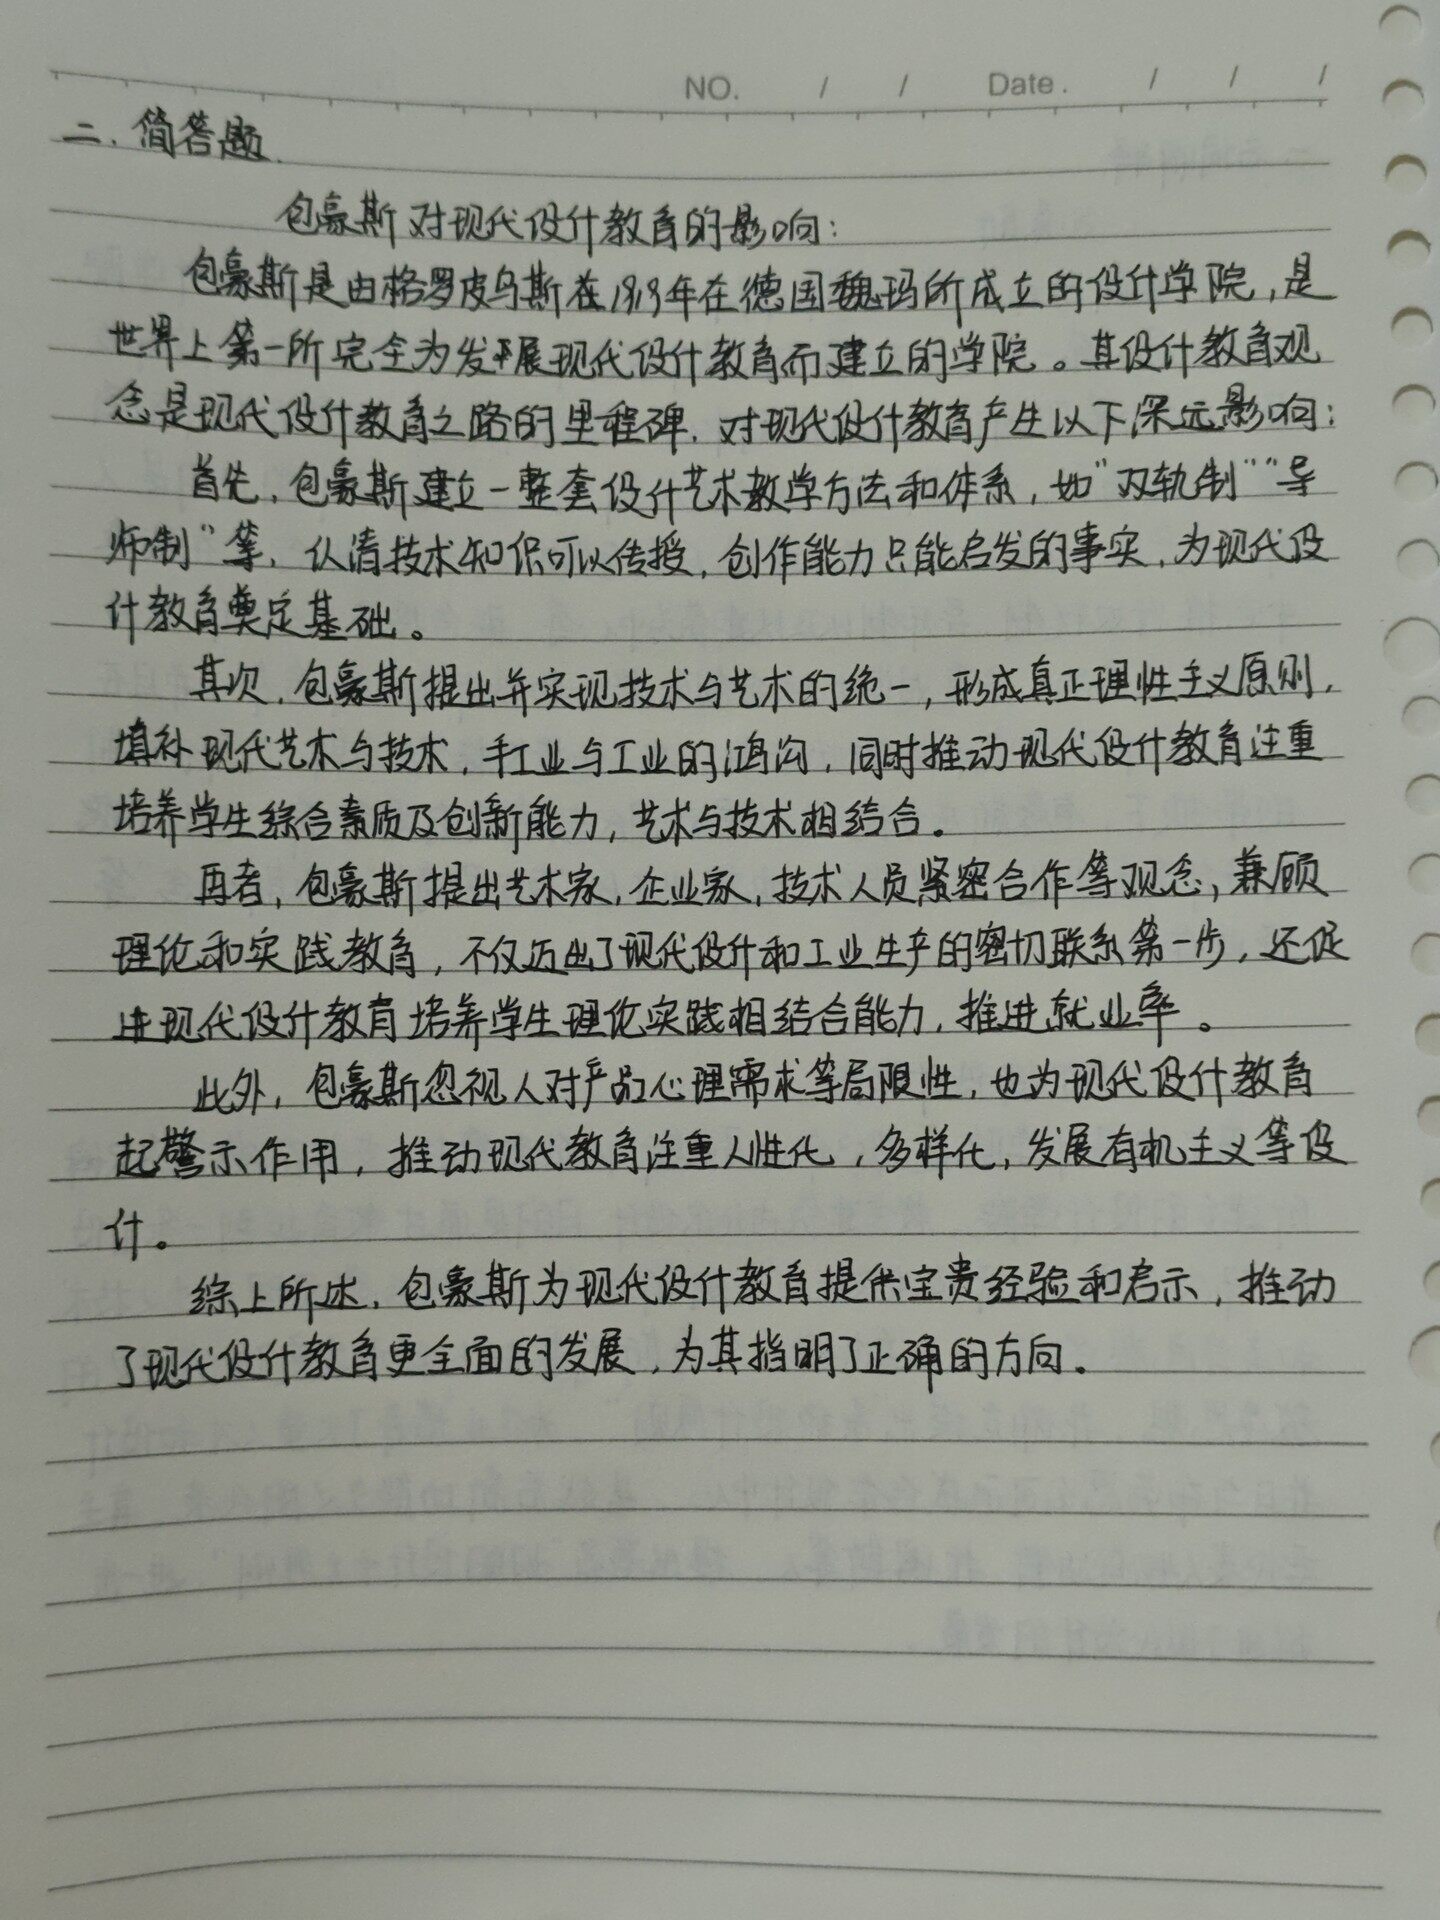 NO. / / Date. / / /
二、简答题
包豪斯对现代设计教育的影响：
包豪斯是由格罗皮乌斯在1919年在德国魏玛所成立的设计学院，是
世界上第一所完全为发展现代设计教育而建立的学院。其设计教育观
念是现代设计教育之路的里程碑，对现代设计教育产生以下深远影响：
首先，包豪斯建立一整套设计艺术教学方法和体系，如“双轨制”“导
师制”等，认清技术知识可以传授，创作能力只能启发的事实，为现代设
计教育奠定基础。
其次，包豪斯提出并实现技术与艺术的统一，形成真正理性主义原则，
填补现代艺术与技术，手工业与工业的鸿沟，同时推动现代设计教育注重
培养学生综合素质及创新能力，艺术与技术相结合。
再者，包豪斯提出艺术家，企业家，技术人员紧密合作等观念，兼顾
理论和实践教育，不仅迈出了现代设计和工业生产的密切联系第一步，还促
进现代设计教育培养学生理论实践相结合能力，推进就业率。
此外，包豪斯忽视人对产品心理需求等局限性，也为现代设计教育
起警示作用，推动现代教育注重人性化，多样化，发展有机主义等设
计。
综上所述，包豪斯为现代设计教育提供宝贵经验和启示，推动
了现代设计教育更全面的发展，为其指明了正确的方向。